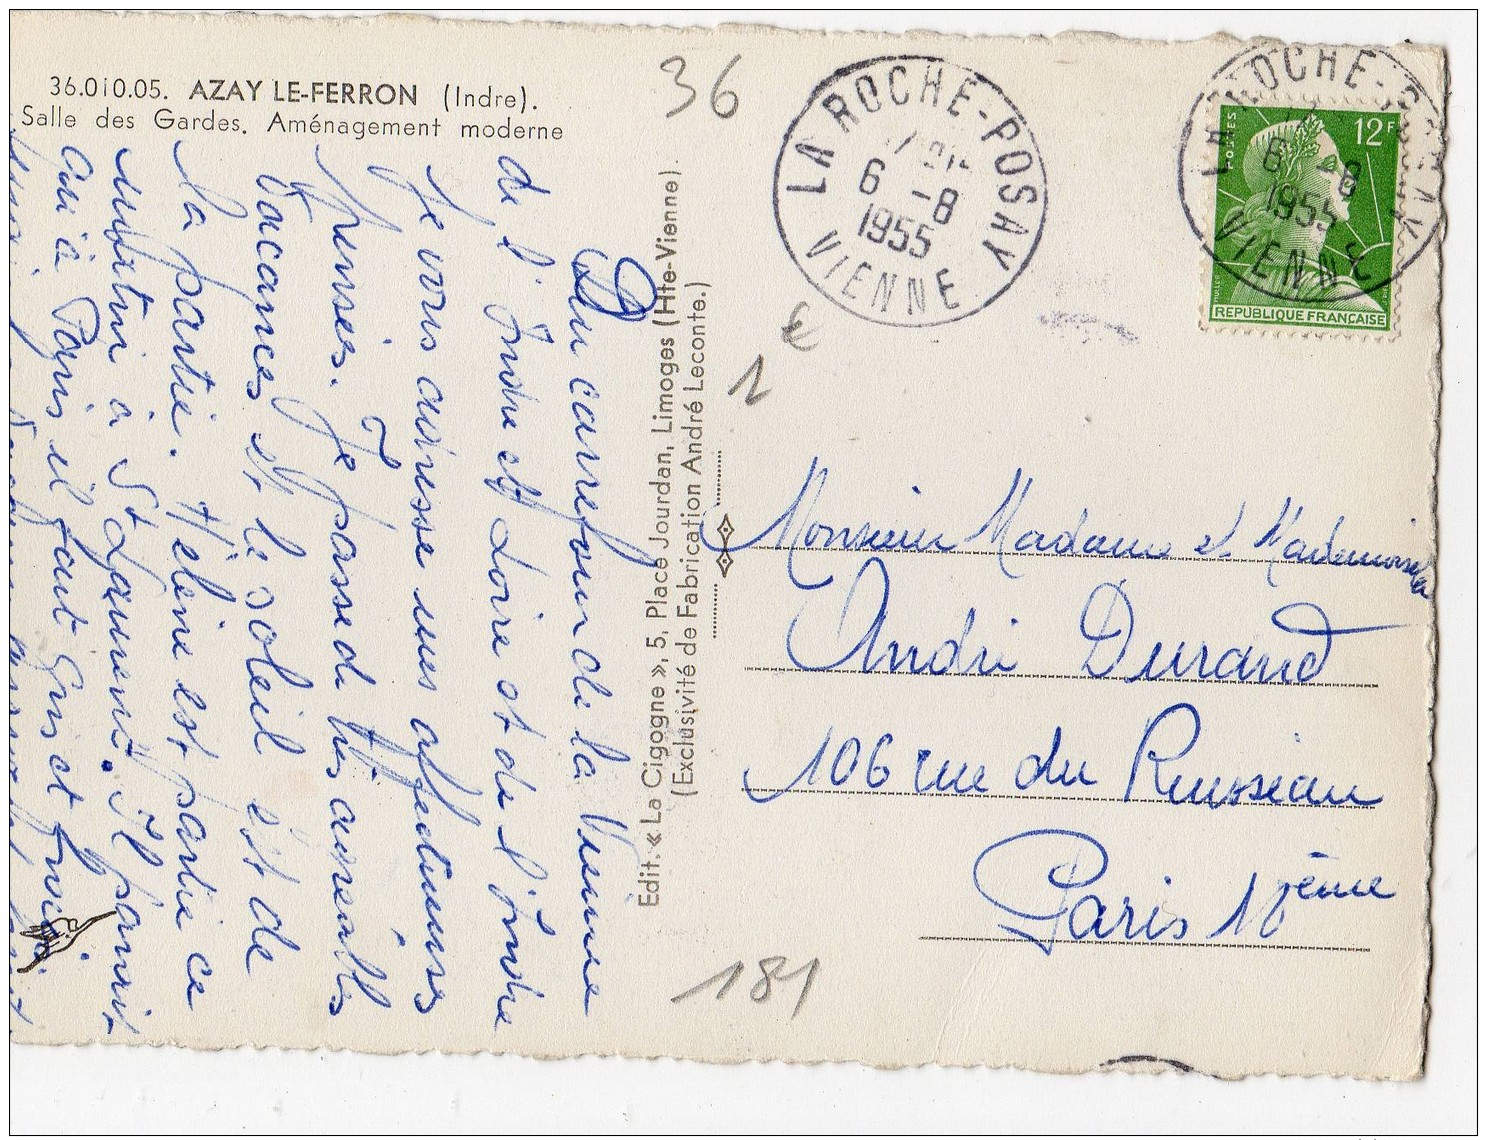 36.010.05. AZAY LE-FERRON (Indre).
Salle des Gardes. Aménagement moderne
36
LA ROCHE-POSAY
6 -8
1955
VIENNE
LA ROCHE-POSAY
6 -8
1955
VIENNE
POSTES
12F
REPUBLIQUE FRANÇAISE
€
1
Edit. « La Cigogne », 5, Place Jourdan, Limoges (Hte-Vienne).
(Exclusivité de Fabrication André Leconte.)
Du carrefour de la Vienne
de l'Indre et Loire et de l'Indre
je vous adresse mes affectueuses
pensées. Je passe de très agréables
vacances et le soleil est de
la partie. Hélène est partie ce
matin à St Laurent. Il paraît
qu'à Paris il fait gris et froid
Monsieur Madame et Mademoiselle
André Durand
106 rue du Ruisseau
Paris 18ème
181